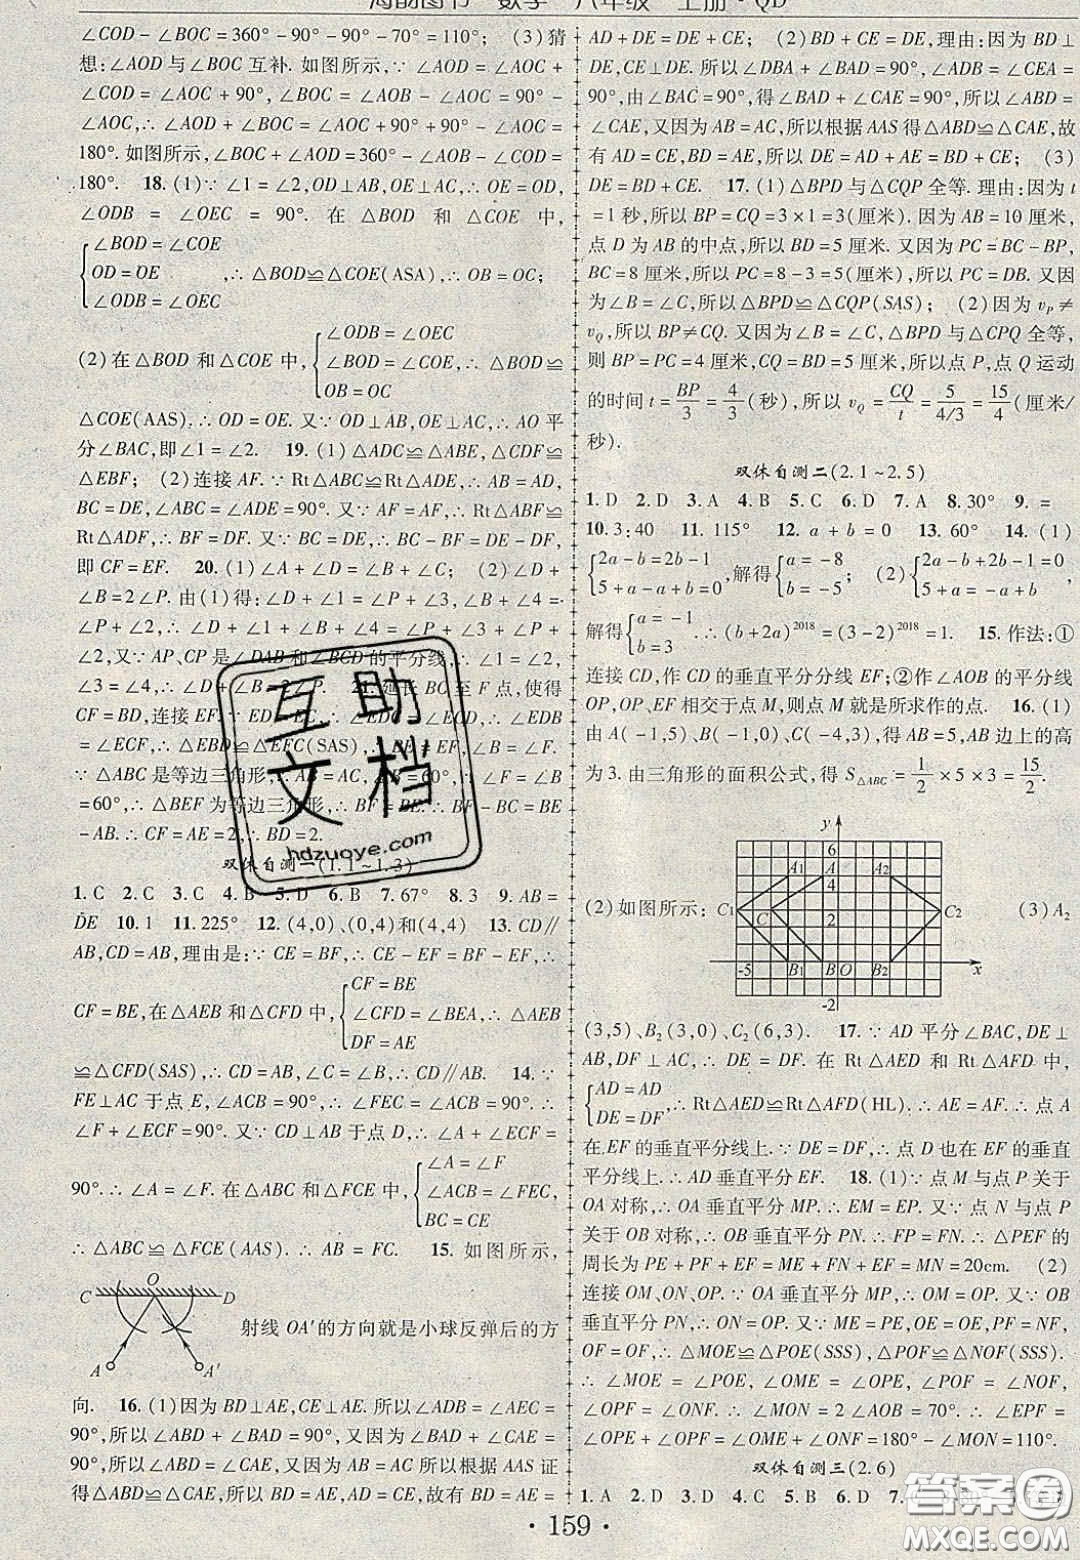 海韵图书 数学 八年级 上册·QD
∠COD-∠BOC=360°-90°-90°-70°=110°; (3)猜
想:∠AOD与∠BOC互补. 如图所示,∵∠AOD=∠AOC+
∠COD=∠AOC+90°,∠BOC=∠AOB-∠AOC=90°-
∠AOC,∴∠AOD+∠BOC=∠AOC+90°+90°-∠AOC=
180°. 如图所示,∠BOC+∠AOD=360°-∠AOB-∠COD=
180°. 18. (1)∵∠1=∠2,OD⊥AB,OE⊥AC,∴OE=OD,
∠ODB=∠OEC=90°. 在△BOD和△COE中,
∠BOD=∠COE
OD=OE ,∴△BOD≌△COE(ASA),∴OB=OC;
∠ODB=∠OEC
∠ODB=∠OEC
(2)在△BOD和△COE中, ∠BOD=∠COE,∴△BOD≌
OB=OC
△COE(AAS).∴OD=OE. 又∵OD⊥AB,OE⊥AC,∴AO平
分∠BAC,即∠1=∠2. 19. (1)△ADC≌△ABE,△CDF≌
△EBF; (2)连接AF. ∵Rt△ABC≌Rt△ADE,∴AB=AD,
BC=DE,∠ABC=∠ADE=90°. 又∵AF=AF,∴Rt△ABF≌
Rt△ADF,∴BF=DF. 又∵BC=DE,∴BC-BF=DE-DF,
即CF=EF. 20. (1)∠A+∠D=∠B+∠C; (2)∠D+
∠B=2∠P. 由(1)得:∠D+∠1=∠P+∠3,∠B+∠4=
∠P+∠2,∴∠D+∠1+∠B+∠4=∠P+∠3+∠P+
∠2,又∵AP、CP是∠DAB和∠BCD的平分线,∴∠1=∠2,
∠3=∠4,∴∠D+∠B=2∠P. 21. 延长BC至F点,使得
CF=BD,连接EF. ∵ED=EC,∴∠EDC=∠ECD,∴∠EDB
=∠ECF,∴△EBD≌△EFC(SAS),∴∠B=∠F.
∵△ABC是等边三角形,∴AB=AC,∠B=60°,∴∠B
=60°,∴△BEF为等边三角形,∴BF=BE.∴BF-BC=BE
-AB.∴CF=AE=2,∴BD=2.
双休自测一(1.1~1.3)
1. C 2. C 3. C 4. B 5. D 6. B 7. 67° 8. 3 9. AB=
DE 10. 1 11. 225° 12. (4,0),(0,4)和(4,4) 13. CD∥
AB,CD=AB,理由是:∵CE=BF,∴CE-EF=BF-EF,∴
CF=BE
CF=BE,在△AEB和△CFD中, ∠CFD=∠BEA,∴△AEB
DF=AE
≌△CFD(SAS),∴CD=AB,∠C=∠B,∴CD∥AB. 14. ∵
FE⊥AC于点E,∠ACB=90°,∴∠FEC=∠ACB=90°.∴
∠F+∠ECF=90°. 又∵CD⊥AB于点D,∴∠A+∠ECF=
∠A=∠F
90°.∴∠A=∠F. 在△ABC和△FCE中, ∠ACB=∠FEC,
BC=CE
∴△ABC≌△FCE(AAS).∴AB=FC. 15. 如图所示,
C O D
射线OA′的方向就是小球反弹后的方
A A′
向. 16. (1)因为BD⊥AE,CE⊥AE. 所以∠ADB=∠AEC=
90°,所以∠ABD+∠BAD=90°,又因为∠BAD+∠CAE=
90°,所以∠ABD=∠CAE,又因为AB=AC所以根据AAS证
得△ABD≌△CAE,所以BD=AE,AD=CE,所以AE=
AD+DE=CE+DE; (2)BD+CE=DE,理由:因为BD⊥
DE,CE⊥DE. 所以∠DBA+∠BAD=90°,∠ADB=∠CEA=
90°,由∠BAC=90°,得∠BAD+∠CAE=90°,所以∠ABD=
∠CAE,又因为AB=AC,所以根据AAS得△ABD≌△CAE,故
有AD=CE,BD=AE,所以DE=AD+AE=BD+CE; (3)
DE=BD+CE. 17. (1)△BPD与△CQP全等. 理由:因为t
=1秒,所以BP=CQ=3×1=3(厘米). 因为AB=10厘米,
点D为AB的中点,所以BD=5厘米. 又因为PC=BC-BP,
BC=8厘米,所以PC=8-3=5(厘米),所以PC=DB. 又因
为∠B=∠C,所以△BPD≌△CQP(SAS); (2)因为vP≠
vQ,所以BP≠CQ. 又因为∠B=∠C,△BPD与△CPQ全等,
则BP=PC=4厘米,CQ=BD=5厘米,所以点P,点Q运动
的时间t=BP/3=4/3(秒),所以vQ=CQ/t=5/(4/3)=15/4(厘米/
秒).
双休自测二(2.1~2.5)
1. D 2. D 3. A 4. B 5. C 6. D 7. A 8. 30° 9. =
10. 3:40 11. 115° 12. a+b=0 13. 60° 14. (1)
2a-b=2b-1 a=-8 2a-b+2b-1=0
,解得 ; (2)
5+a-a+b=0 b=-5 5+a=-a+b
,
a=-1
解得 .∴(b+2a)2018=(3-2)2018=1. 15. 作法:①
b=3
连接CD,作CD的垂直平分分线EF;②作∠AOB的平分线
OP,OP、EF相交于点M,则点M就是所求作的点. 16. (1)
由A(-1,5)、B(-1,0)、C(-4,3),得AB=5,AB边上的高
为3. 由三角形的面积公式,得S△ABC=1/2×5×3=15/2.
y
6
A1 A 4 A2
(2)如图所示; C1 C 2 C2 (3)A2
-5 B1 B O B2 x
-2
(3,5)、B2(3,0)、C2(6,3). 17. ∵AD平分∠BAC,DE⊥
AB,DF⊥AC,∴DE=DF. 在Rt△AED和Rt△AFD中,
AD=AD
,∴Rt△AED≌Rt△AFD(HL).∴AE=AF.∴点A
DE=DF
在EF的垂直平分线上.∵DE=DF,∴点D也在EF的垂直
平分线上.∴AD垂直平分EF. 18. (1)∵点M与点P关于
OA对称,∴OA垂直平分MP.∴EM=EP. 又∵点N与点P
关于OB对称,∴OB垂直平分PN.∴FP=FN.∴△PEF的
周长为PE+PF+EF=ME+FN+EF=MN=20cm. (2)
连接OM、ON、OP.∵OA垂直平分MP,∴OM=OP. 又∵OB
垂直平分PN,∴ON=OP. 又∵ME=PE,OE=OE,PF=NF,
OF=OF,∴△MOE≌△POE(SSS),△POF≌△NOF(SSS).
∴∠MOE=∠POE,∠OME=∠OPE,∠POF=∠NOF,
∠OPF=∠ONF.∴∠MON=2∠AOB=70°.∴∠EPF=
∠OPE+∠OPF=∠OME+∠ONF=180°-∠MON=110°.
双休自测三(2.6)
1. A 2. D 3. D 4. B 5. B 6. D 7.
· 159 ·
互助
文档
hdzuoye.com
答案圈
MXQE.COM